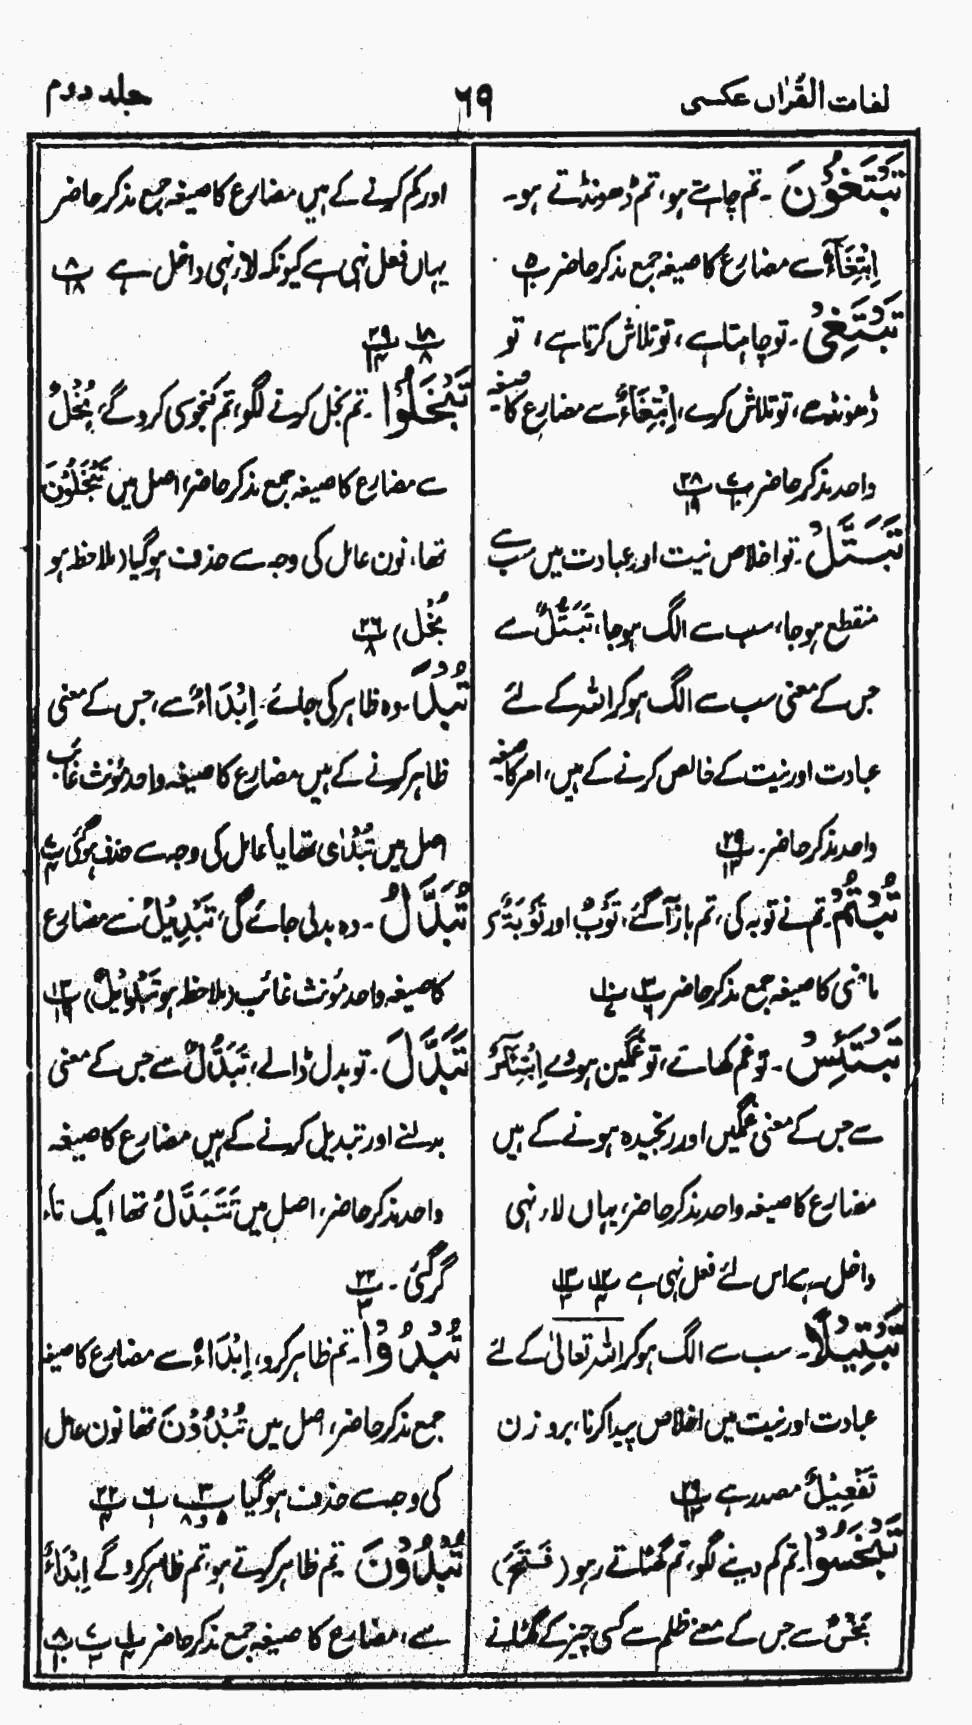 لغات القرآن عکسی
٦٩
جلد دوم
تَبْتَغُوْنَ ۔ تم چاہتے ہو، تم ڈھونڈتے ہو۔
اِبْتِغَآءٌ سے مضارع کا صیغہ جمع مذکر حاضر پ
تَبْتَغِیْ ۔ تو چاہتا ہے، تو تلاش کرتا ہے، تو
ڈھونڈھے، تو تلاش کرے، اِبْتِغَآءٌ سے مضارع کا صیغہ
واحد مذکر حاضر
تَبَتَّلْ ۔ تو اخلاص نیت اور عبادت میں سب سے
منقطع ہو جا، سب سے الگ ہو جا، تَبَتُّلٌ سے
جس کے معنی سب سے الگ ہو کر اللہ کے لئے
عبادت اور نیت کے خالص کرنے کے ہیں، امر کا صیغہ
واحد مذکر حاضر۔ ٢٩
تُبْتُمْ ۔ تم نے توبہ کی، تم باز آ گئے، تَوْبٌ اور تَوْبَةٌ
ماضی کا صیغہ جمع مذکر حاضر
تَبْتَئِسْ ۔ تو غم کھاتے، تو غمگین ہووے اِبْتِئَاسٌ
سے جس کے معنی غمگیں اور رنجیدہ ہونے کے ہیں
مضارع کا صیغہ واحد مذکر حاضر، یہاں لاء نہی
داخل ہے اس لئے فعل نہی ہے
تَبْتِیْلًا ۔ سب سے الگ ہو کر اللہ تعالیٰ کے لئے
عبادت اور نیت میں اخلاص پیدا کرنا، بروزن
تَفْعِیْلٌ مصدر ہے ٢٩
تَبْخَسُوْا ۔ تم کم دینے لگو، تم گھٹاتے رہو (فَتَحَ)
بَخْسٌ سے جس کے معنے ظلم سے کسی چیز کے گھٹانے
اور کم کرنے کے ہیں مضارع کا صیغہ جمع مذکر حاضر
یہاں فعل نہی ہے کیونکہ لاء نہی داخل ہے ٨
١٨ ٢٩
تَبْخَلُوْا ۔ تم بخل کرنے لگو، تم کنجوسی کرو گے، بُخْلٌ
سے مضارع کا صیغہ جمع مذکر حاضر، اصل میں تَبْخَلُوْنَ
تھا، نون عامل کی وجہ سے حذف ہو گیا (ملاحظہ ہو
بُخْل) ٢٦
تُبْدَ ۔ وہ ظاہر کی جائے۔ اِبْدَاءٌ سے، جس کے معنی
ظاہر کرنے کے ہیں مضارع کا صیغہ واحد مؤنث غائب
اصل میں تُبْدٰی تھا یا عامل کی وجہ سے حذف ہو گئی
تُبَدَّلُ ۔ وہ بدلی جائے گی، تَبْدِیْلٌ سے مضارع
کا صیغہ واحد مؤنث غائب (ملاحظہ ہو تَبْدِیْل)
تَبَدَّلَ ۔ تو بدل ڈالے، تَبَدُّلٌ سے جس کے معنی
بدلنے اور تبدیل کرنے کے ہیں مضارع کا صیغہ
واحد مذکر حاضر، اصل میں تَتَبَدَّلُ تھا ایک تاء
گر گئی۔ ٢٢
تُبْدُوْا ۔ تم ظاہر کرو، اِبْدَاءٌ سے مضارع کا صیغہ
جمع مذکر حاضر، اصل میں تُبْدُوْنَ تھا نون عامل
کی وجہ سے حذف ہو گیا ٣ ٦ ٢٢
تُبْدُوْنَ ۔ تم ظاہر کرتے ہو، تم ظاہر کرو گے اِبْدَاءٌ
سے، مضارع کا صیغہ جمع مذکر حاضر